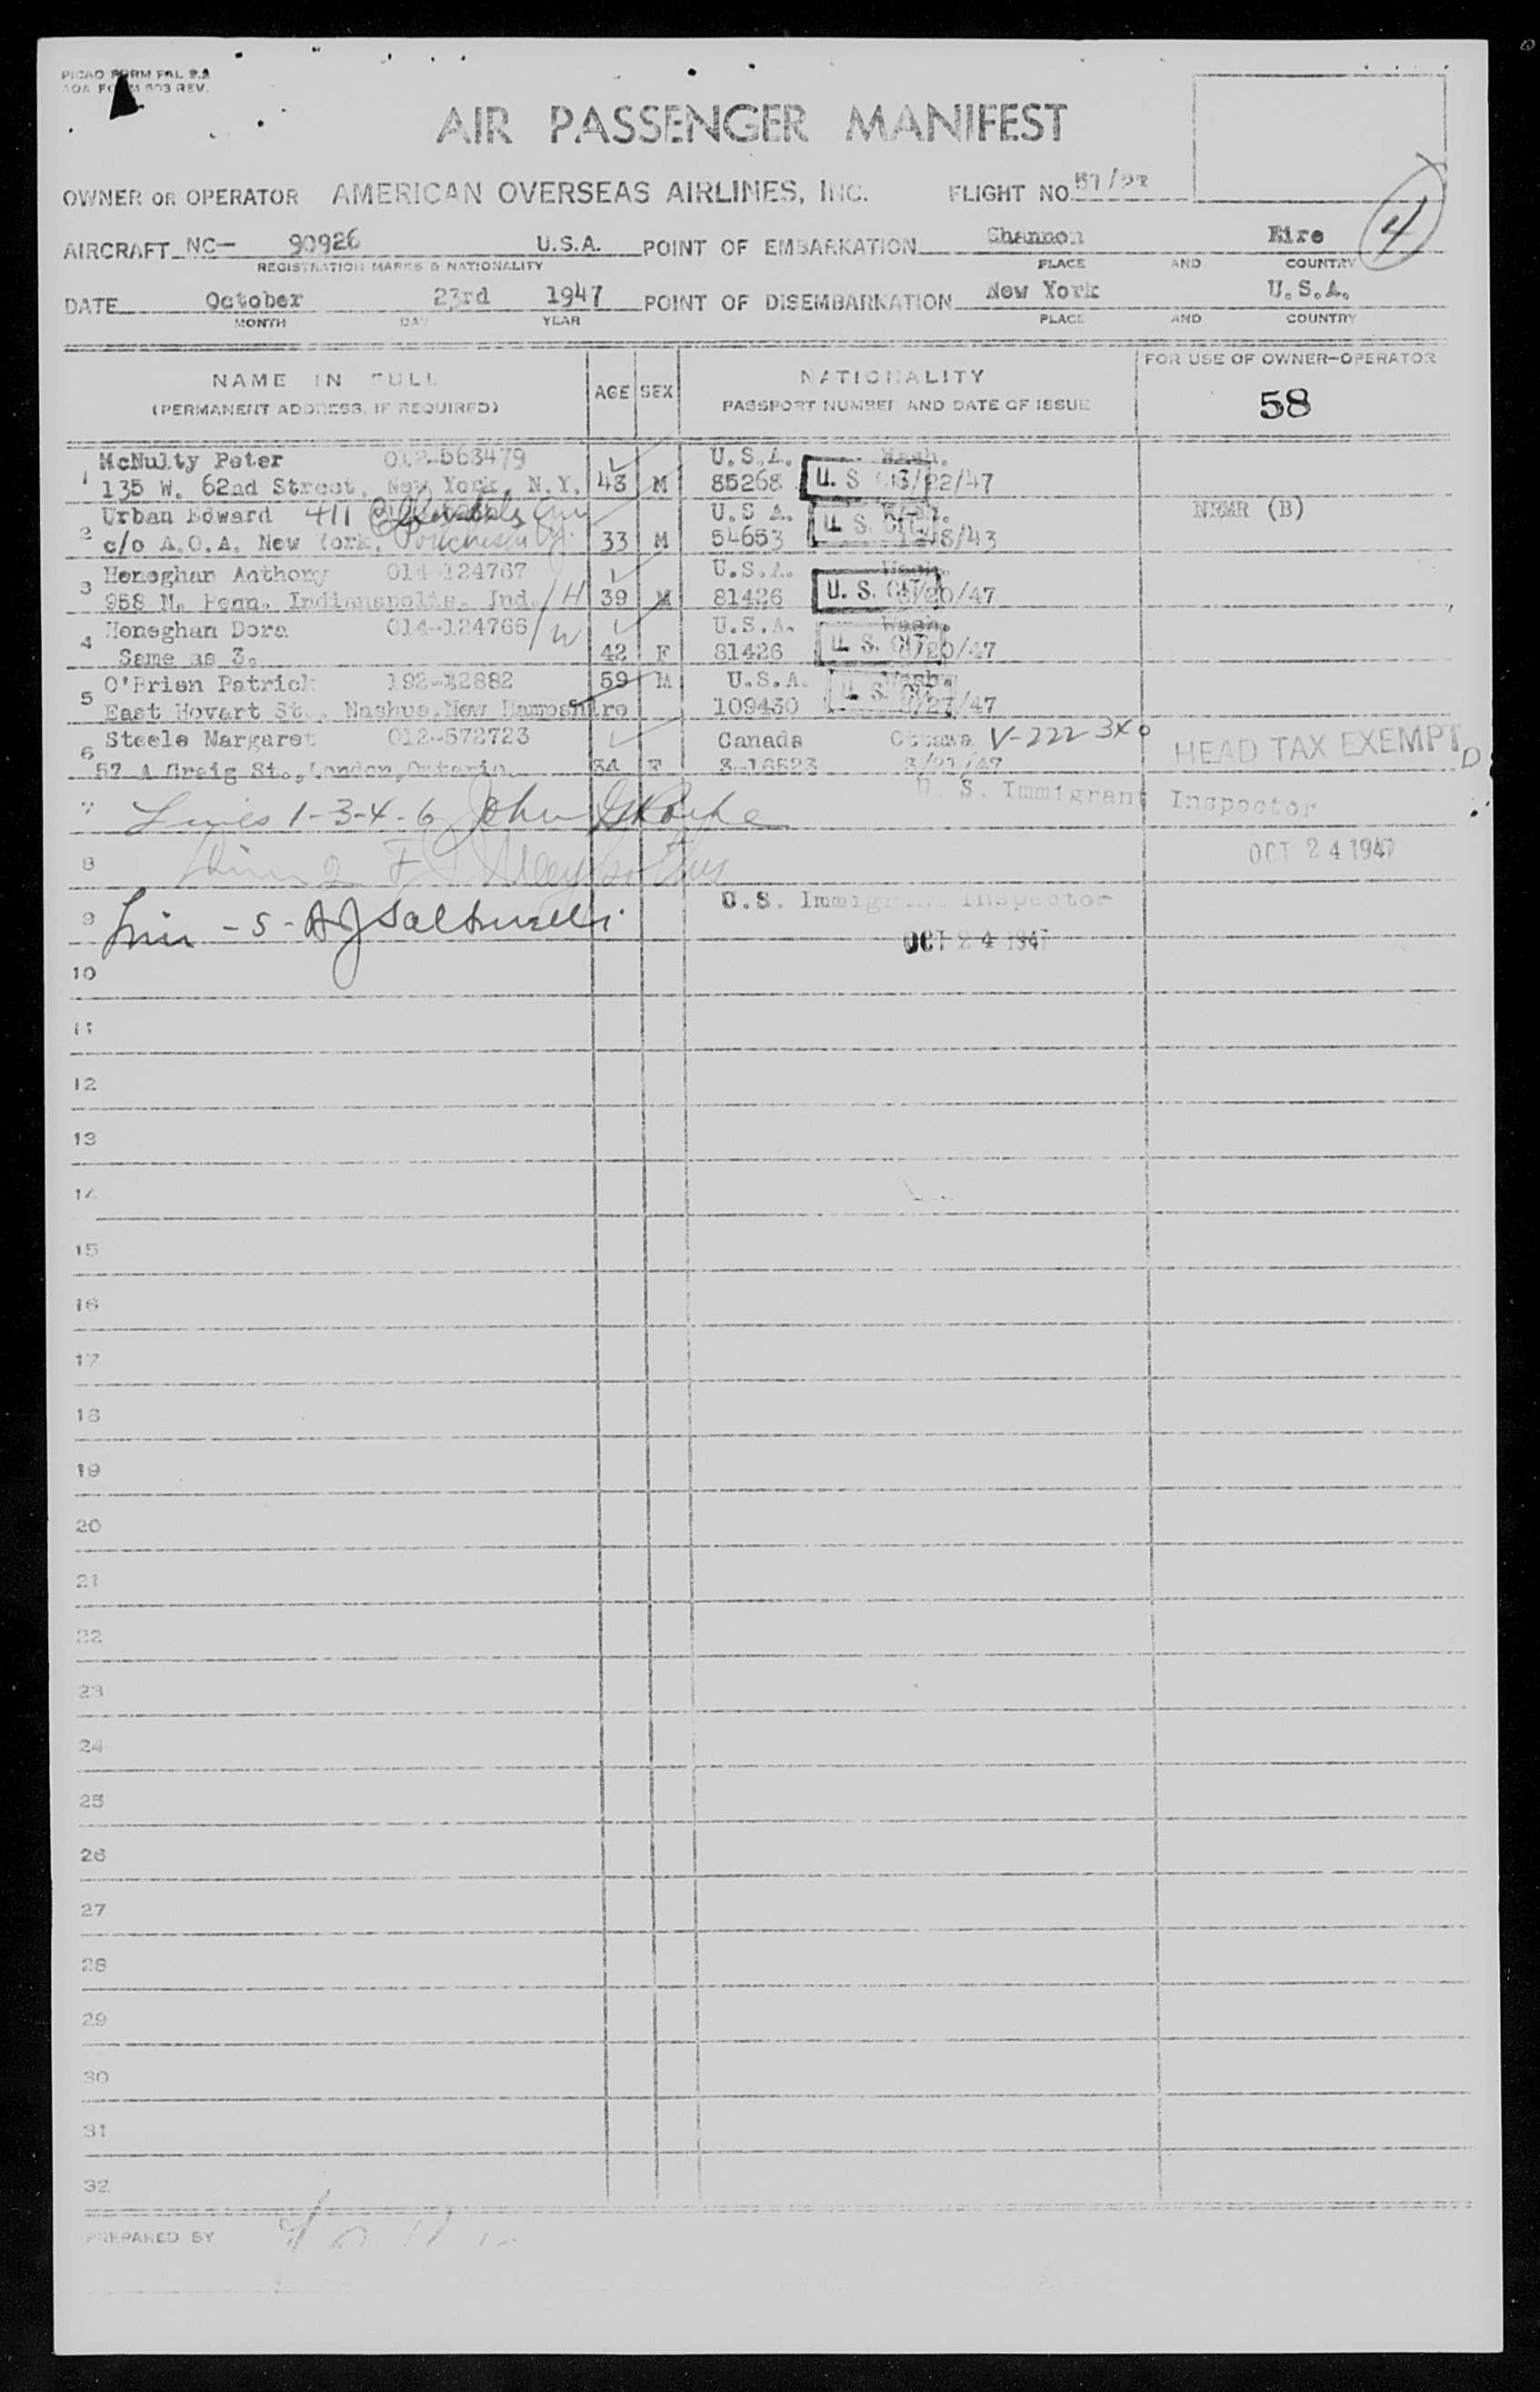 PICAO FORM PAL 2.2
AOA FORM 603 REV.
AIR PASSENGER MANIFEST
OWNER OR OPERATOR AMERICAN OVERSEAS AIRLINES, INC. FLIGHT NO.
AIRCRAFT NC— 90926 U.S.A. POINT OF EMBARKATION Shannon Eire 4
REGISTRATION MARKS & NATIONALITY PLACE AND COUNTRY
DATE October 23rd 1947 POINT OF DISEMBARKATION New York U.S.A.
MONTH DAY YEAR PLACE AND COUNTRY
NAME IN FULL AGE SEX NATIONALITY FOR USE OF OWNER-OPERATOR
(PERMANENT ADDRESS, IF REQUIRED) PASSPORT NUMBER AND DATE OF ISSUE 58
1 McNulty Peter 012-563479 U.S.A. Wash.
135 W. 62nd Street, New York, N.Y. 43 M 85268 U.S. /22/47
2 Urban Edward 411 U.S.A. NRMR (B)
c/o A.O.A. New York, 33 M 54653 U.S. CIT /43
3 Heneghan Anthony 014-124767 U.S.A. Wash.
958 N. Penn. Indianapolis. Ind. H 39 M 81426 U.S. CIT /20/47
4 Heneghan Dora 014-124766 W U.S.A. Wash.
Same as 3. 42 F 81426 U.S. CIT /20/47
5 O'Brien Patrick 59 M U.S.A. Wash.
East Hovart St., Nashua, New Hampshire 109430 U.S. /27/47
6 Steele Margaret 012-572723 Canada Ottawa V-222 340 HEAD TAX EXEMPT
57 A Greig St., London, Ontario 34 F 3-16523 3/21/47
7 Lines 1-3-4-6 John U.S. Immigrant Inspector
8 OCT 24 1947
9 Line - 5 - U.S. Immigrant Inspector
OCT 24 1947
10
11
12
13
14
15
16
17
18
19
20
21
22
23
24
25
26
27
28
29
30
31
32
PREPARED BY